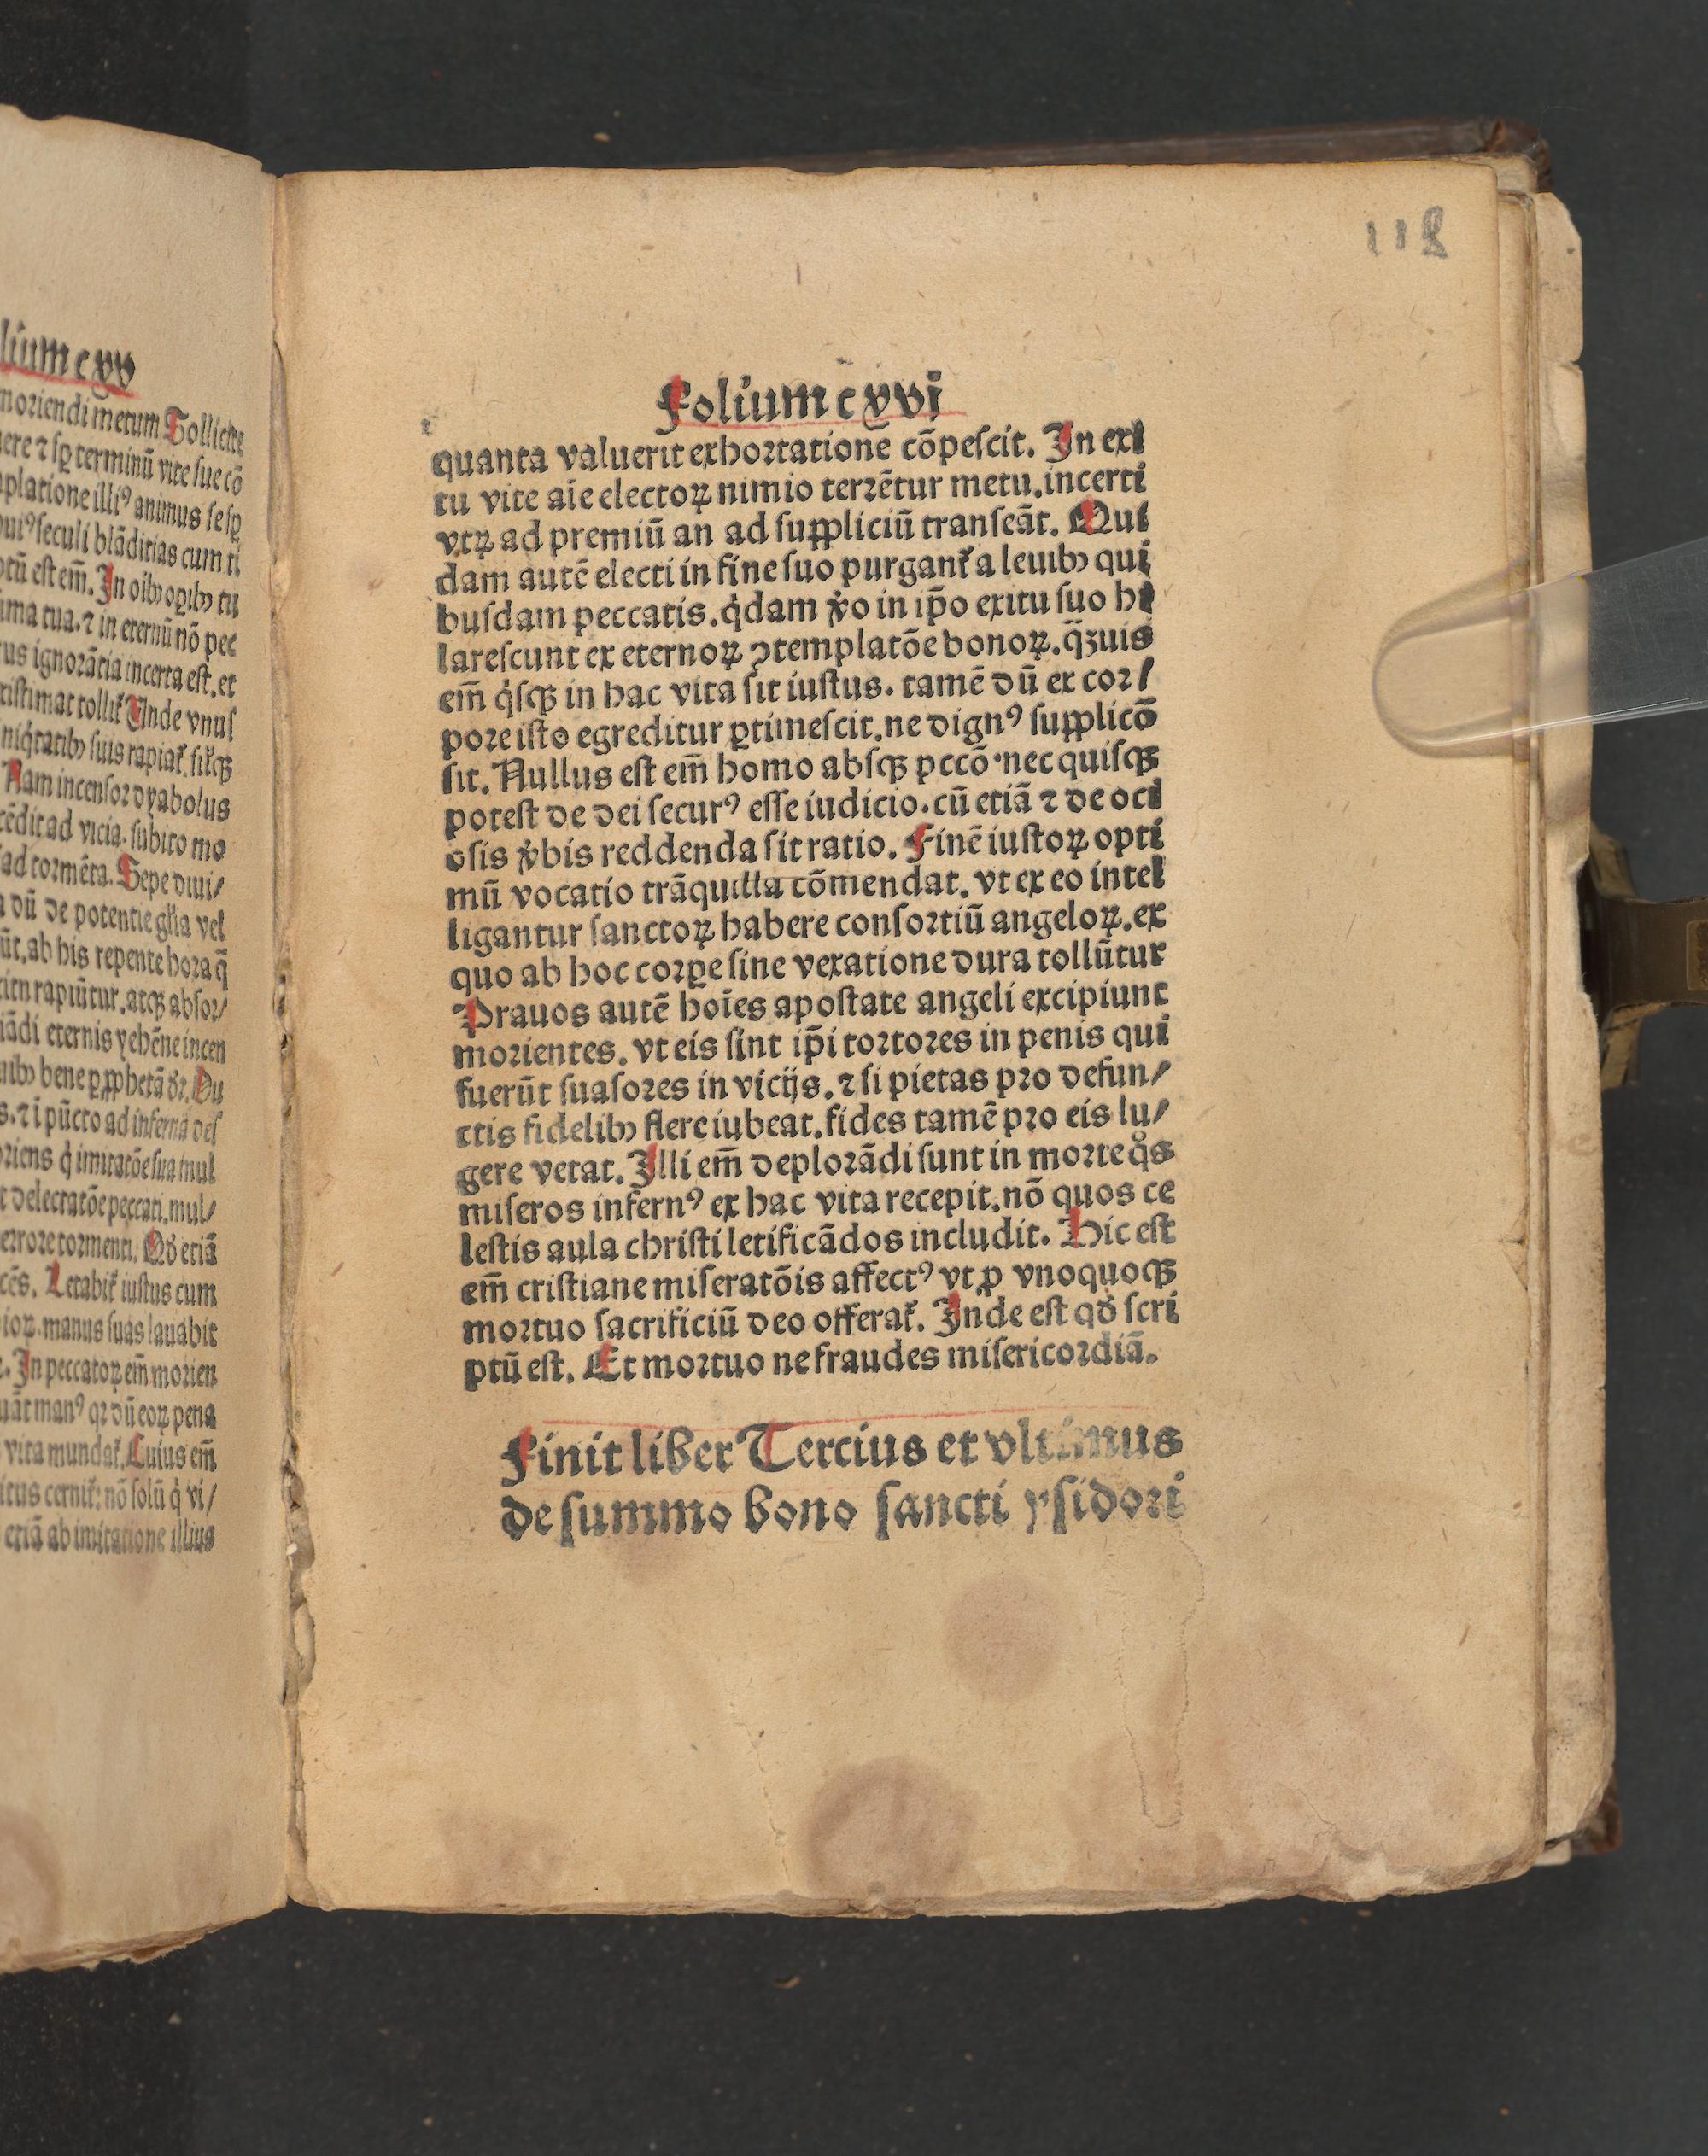 lium cxv
moriendi metum Sollicite
ere ⁊ sꝑ terminū vite sue cō
platione illiꝰ animus se sꝑ
seculi blādicias cum ti
tū est em̄. In oib9 oꝑib9 tu
ma tua. ⁊ in eternū nō pec
us ignorātia incerta est. et
istimat tollit᷑ Unde vnus
niq̇tatib9 suis rapiat᷑
Nam incensor dyabolus
cēdit ad vicia. subito mo
ad tormēta. Sepe diui/
a dū de potentie gl̃ia vel
ūt, ab his repente hora q̄
rapiūtur. atqꝫ absor/
iādi eternis yehēne incen
uib9 bene ꝑ ꝓphetā dr̃. Du
s. ⁊ ī pūcto ad inferna des
oriens q̇ imitatōe sua mul
t delectatōe peccati. mul/
errore tormenti. Qd̃ etiā
cēs. Letabit᷑ iustus cum
ioꝝ. manus suas lauabit
. In peccatoꝝ em̄ morien
uāt manꝰ qꝛ dū eoꝝ pena
vita mundat᷑. Cuius em̄
itus cernit᷑: nō solū q̇ vi/
etiā ab imitatione illius
112
Folium cxvi
quanta valuerit exhortatione cōpescit. In exi
tu vite aīe electoꝝ nimio terrētur metu. incerti
vtꝝ ad premiū an ad suppliciū transeāt. Qui
dam autē electi in fine suo purgant᷑ a leuib9 qui
busdam peccatis. q̇dam v̓o in ip̄o exitu suo hi
larescunt ex eternoꝝ ꝯtemplatōe bonoꝝ. q̄ꝫuis
em̄ q̇sqꝫ in hac vita sit iustus. tamē dū ex cor/
pore isto egreditur ꝑtimescit. ne dignꝰ supplicō
sit. Nullus est em̄ homo absqꝫ pccō. nec quisqꝫ
potest de dei securꝰ esse iudicio. cū etiā ⁊ de oci
osis v̓bis reddenda sit ratio. Finē iustoꝝ opti
mū vocatio trāquilla cōmendat. vt ex eo intel
ligantur sanctoꝝ habere consortiū angeloꝝ. ex
quo ab hoc corꝑe sine vexatione dura tollūtur
Prauos autē hoīes apostate angeli excipiunt
morientes. vt eis sint ip̄i tortores in penis qui
fuerūt suasores in vicijs. ⁊ si pietas pro defun/
ctis fidelib9 flere iubeat. fides tamē pro eis lu/
gere vetat. Illi em̄ deplorādi sunt in morte qͦs
miseros infernꝰ ex hac vita recepit. nō quos ce
lestis aula christi letificādos includit. Hic est
em̄ cristiane miseratōis affectꝰ vt ꝓ vnoquoqꝫ
mortuo sacrificiū deo offerat᷑. Inde est qd̃ scri
ptū est. Et mortuo ne fraudes misericordiā.
Finit liber Tercius et vltimus
de summo bono sancti ysidori